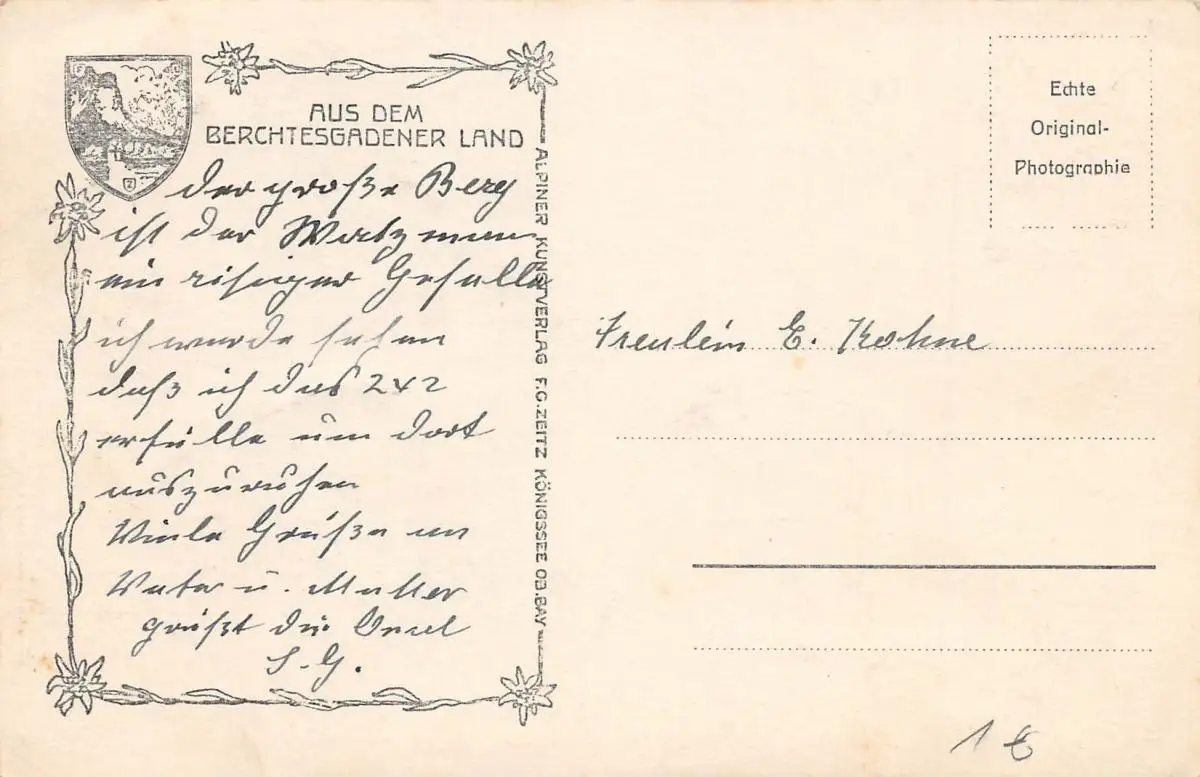 AUS DEM
BERCHTESGADENER LAND
der große Berg
ist der Watzmann
ein risiger Geselle
ich werde sehen
daß ich das 2x2
erfülle um dort
auszuruhen
Viele Grüße an
Vater u. Mutter
grüßt die Onkel
S. G.
ALPINER KUNSTVERLAG F.G. ZEITZ KÖNIGSSEE OB.BAY
Echte
Original-
Photographie
Freulein E. Kohne
1 €